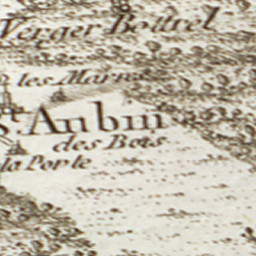 Verger Bottrel
les Marres
St. Aubin
des Bois
la Porte